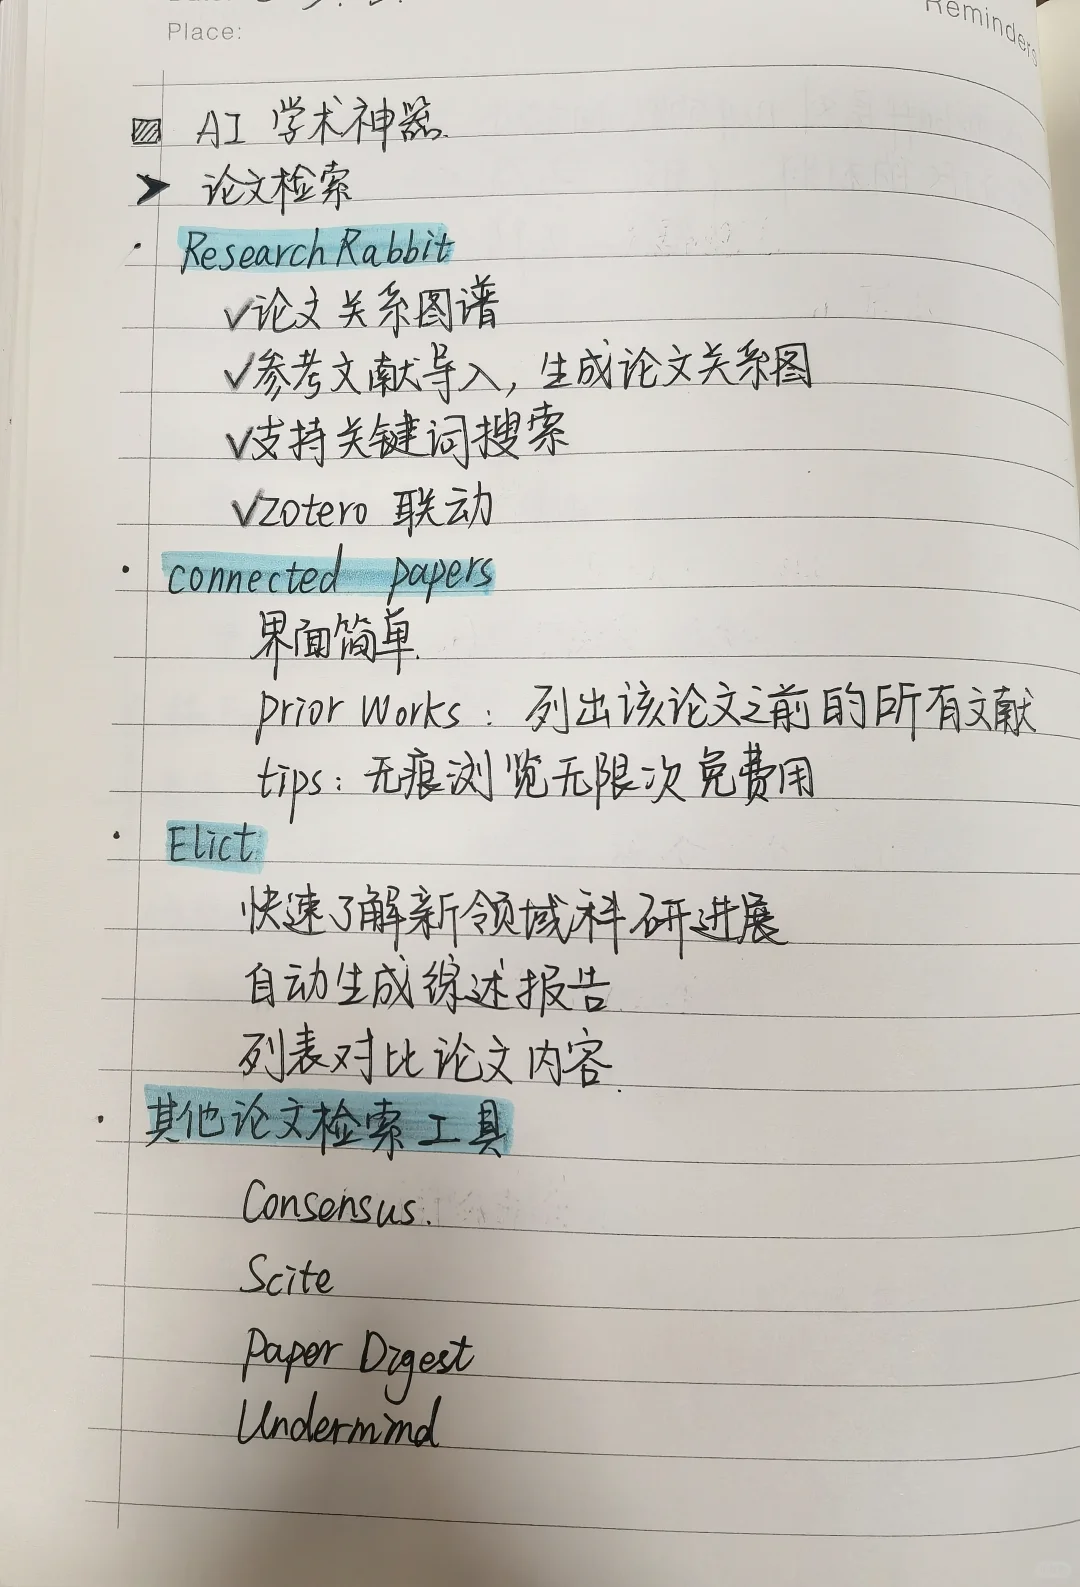 Place:
Reminders
AI 学术神器.
论文检索
· Research Rabbit
✓论文关系图谱
✓参考文献导入, 生成论文关系图
✓支持关键词搜索
✓zotero 联动
· connected papers
界面简单.
prior works: 列出该论文之前的所有文献
tips: 无痕浏览无限次免费用
· Elict
快速了解新领域科研进展
自动生成综述报告
列表对比论文内容.
· 其他论文检索工具
Consensus.
Scite
Paper Digest
Undermimd